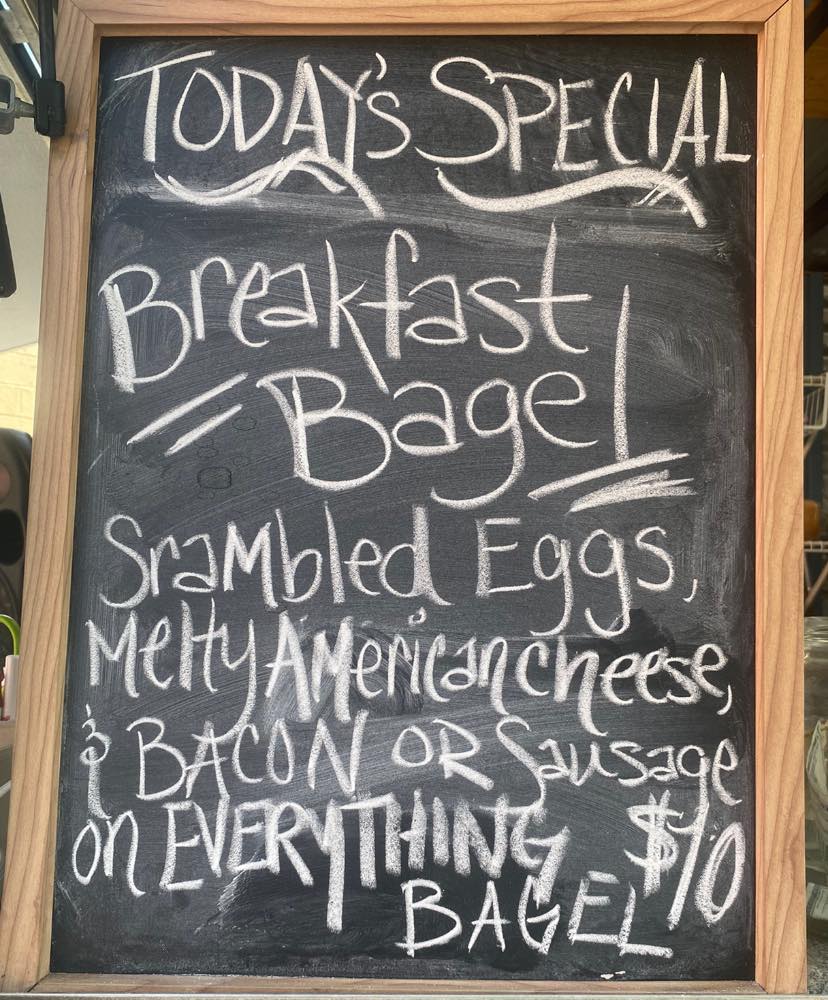 TODAY'S SPECIAL
Breakfast
Bagel
SraMbled Eggs,
Melty AMerican cheese,
& BACON OR Sausage
on EVERYTHING $10
BAGEL